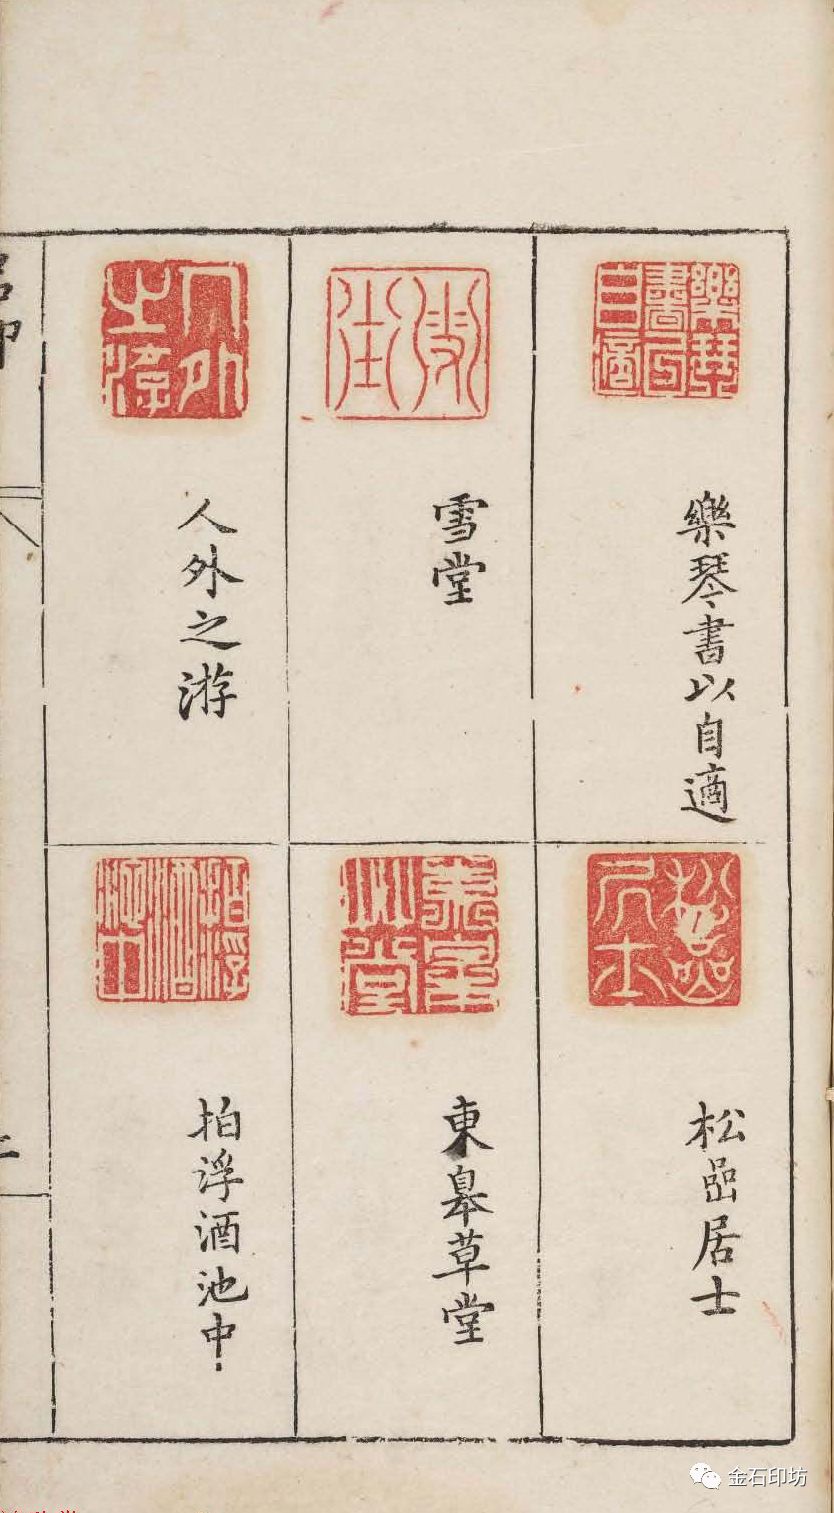 樂琴書以自適
松嵒居士
雪堂
東皋草堂
人外之游
拍浮酒池中
金石印坊